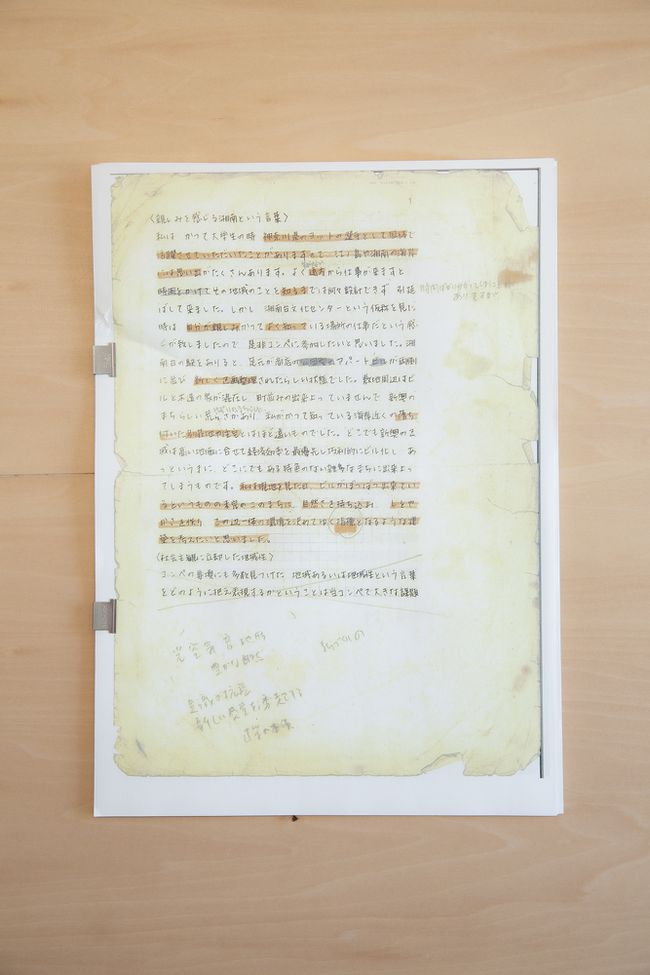 〈親しみを感じる湘南という言葉〉
私は かつて大学生の時 神奈川県のヨットの選手として国体で
活躍させていただいたことがありますので 江ノ島や湘南の海岸
には思い出がたくさんあります。よく遠方から仕事が来ますと
時間をかけてその地域のことを知るまでは何々設計できず 引延
ばして来ました。しかし 湘南台文化センターという仮称を見た
時は 自分が親しみかつてよく知っている場所の仕事だという感
じが致しましたので 是非コンペに参加したいと思いました。湘
南台の駅をおりると 足元が商店の アパート ビルが両側
に並び 新しく区画整理されたらしい状態でした。敷地周辺はビ
ルと木造の家が混在し 町並みの出来上っていませんで 新興の
まちらしい荒らさがあり 私がかつて知っている海岸近くの落ち
ついた別荘地や住宅とはほど遠いものでした。どこでも新興の区
域は高い地価に合せて経済効率を最優先し巧利的にビル化し あ
っというまに、どこにでもある特色のない雑多なまちに出来上っ
てしまうものです。私は現地を見た日 ビルがぽつぽつ出来てい
るというものの未完のこのまちは、自然さを持ち込み
その辺一帯の環境を決めてゆく指標となるような建
築を考えたいと思いました。
〈社会主観に立脚した地域性〉
コンペの要項にも多数見つけた 地域あるいは地域性という言葉
をどのように把え表現するかということは当コンペで大きな課題
光 空気 音 地形
豊かな自然
新しい